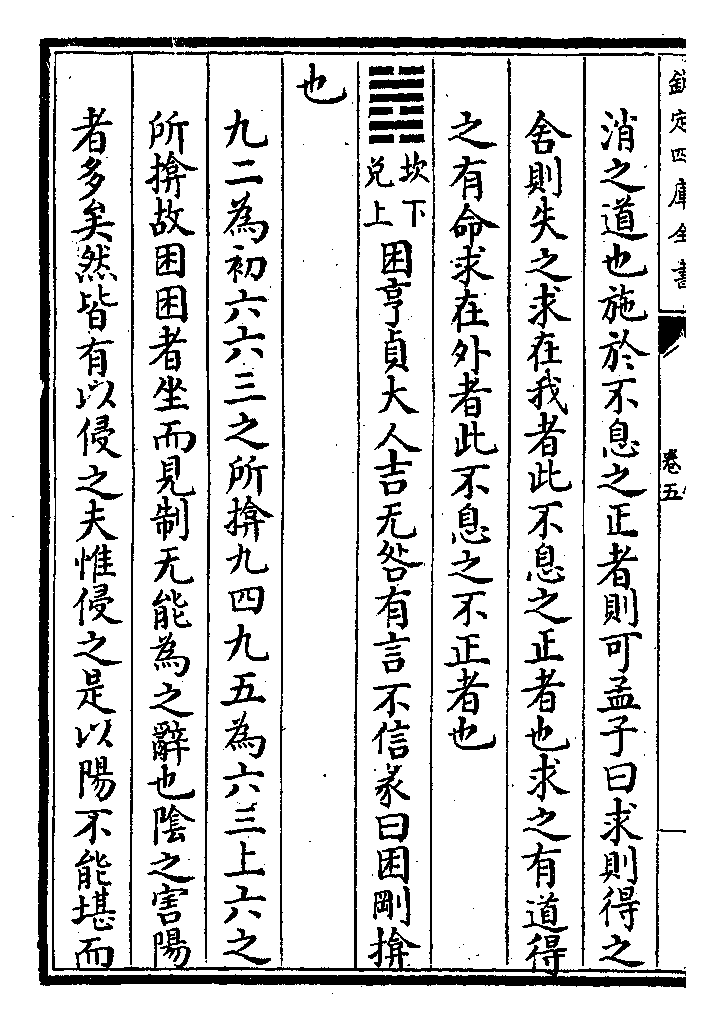 欽定四庫全書
卷五
消之道也施於不息之正者則可孟子曰求則得之
舍則失之求在我者此不息之正者也求之有道得
之有命求在外者此不息之不正者也
䷮坎下兌上困亨貞大人吉无咎有言不信彖曰困剛揜
也
九二為初六六三之所揜九四九五為六三上六之
所揜故困困者坐而見制无能為之辭也陰之害陽
者多矣然皆有以侵之夫惟侵之是以陽不能堪而